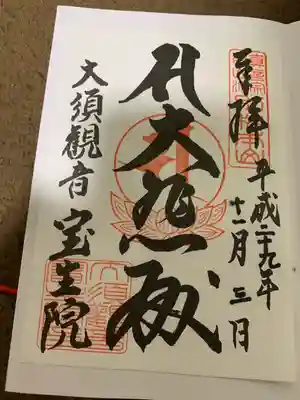 奉拝
平成二九年
十一月三日
大悲殿
大須観音
宝生院